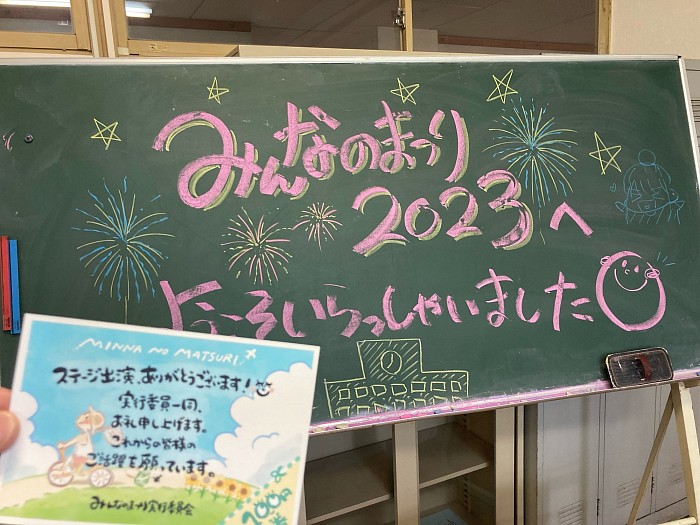 みんなのまつり
2023へ
ようこそいらっしゃいました
MINNA NO MATSURI
ステージ出演、ありがとうございます!
実行委員一同、
お礼申し上げます。
これからの皆様の
ご活躍を願っています。
みんなのまつり実行委員会